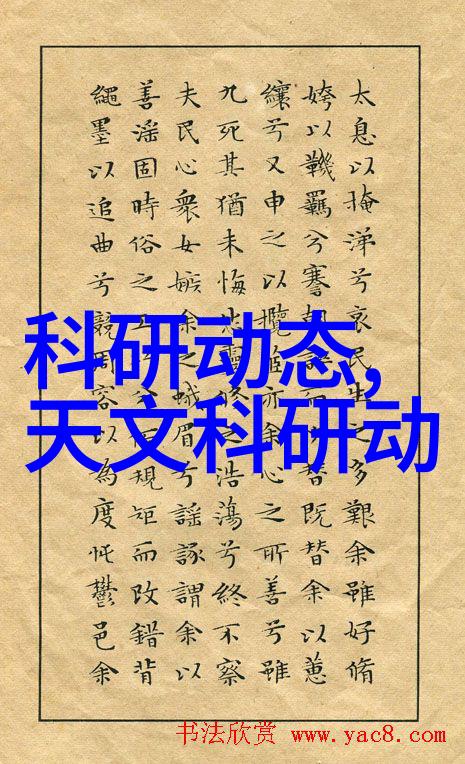 太息以掩涕兮哀民生之多艱余雖好脩
姱以鞿羈兮謇朝誶而替既替余以蕙
纕兮又申之以攬茝亦余心之所善兮雖
九死其猶未悔靈脩之浩蕩兮終不察
夫民心衆女嫉余之蛾眉兮謠諑謂余以
善淫固時俗之工兮規矩而改錯背
繩墨以追曲兮競周容以為度忳鬱邑余
科研动态,
天文科研动
书法欣赏 www.yac8.com